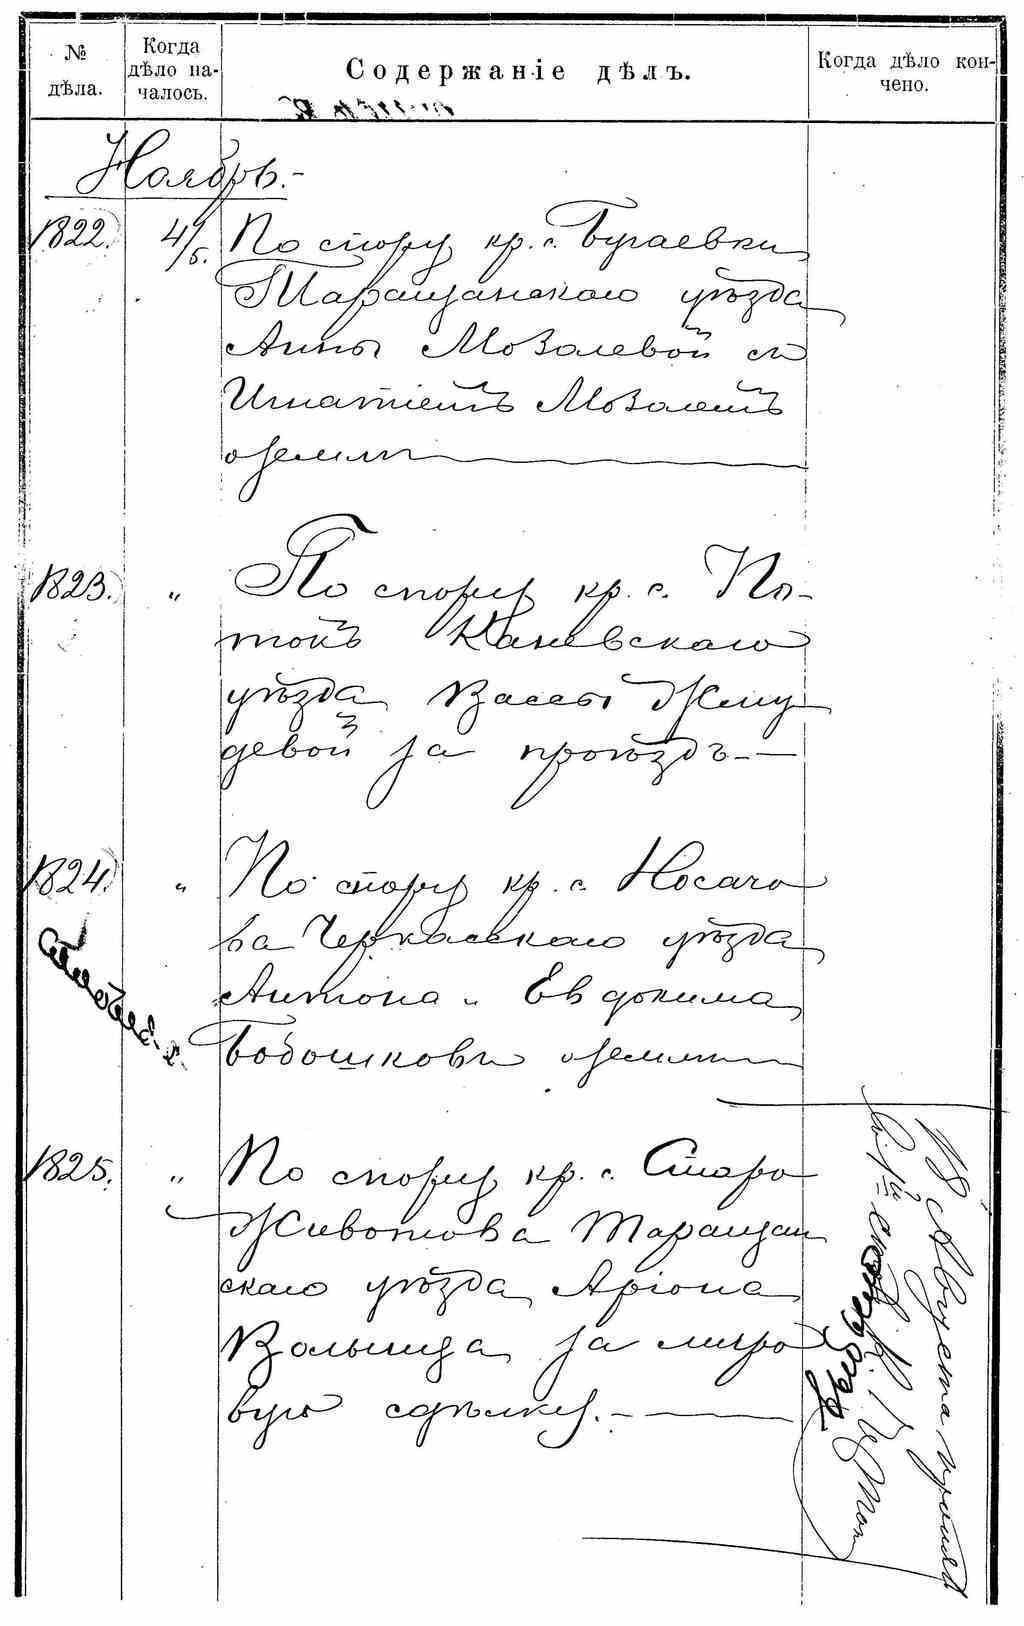 № дѣла.
Когда
дѣло на-
чалось.
Содержаніе дѣлъ.
Когда дѣло кон-
чено.
Ноябрь.-
1822. 4/5. По спору кр. с. Бугаевки
Таращанскаго уѣзда
Анны Мозолевой съ
Игнатіемъ Мозолемъ
о землѣ
1823. " По спору кр. с. По-
токъ Каневскаго
уѣзда Вассы Жму
девой за проѣздъ.—
1824. " По спору кр. с. Носачо
ва Черкасскаго уѣзда
Антона и Евдокима
Бобошковы о землѣ
1825. " По спору кр. с. Старо
Животова Таращан
скаго уѣзда Аріона
Волынца за миро
вую сдѣлку.—
18 Августа